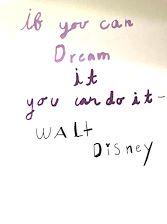 if you can
Dream
it
you can do it-
WALt
DiSney